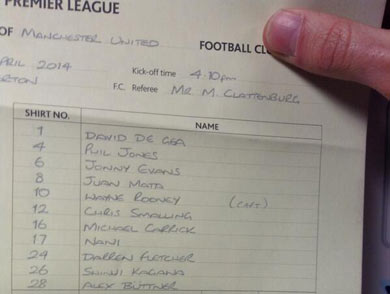 PREMIER LEAGUE
OF MANCHESTER UNITED FOOTBALL CL
APRIL 2014 Kick-off time 4.10pm
ERTON F.C. Referee MR M. CLATTENBURG
SHIRT NO. NAME
1 DAVID DE GEA
4 PHIL JONES
6 JONNY EVANS
8 JUAN MATA
10 WAYNE ROONEY (CAPT)
12 CHRIS SMALLING
16 MICHAEL CARRICK
17 NANI
24 DARREN FLETCHER
26 SHINJI KAGAWA
28 ALEX BUTTNER